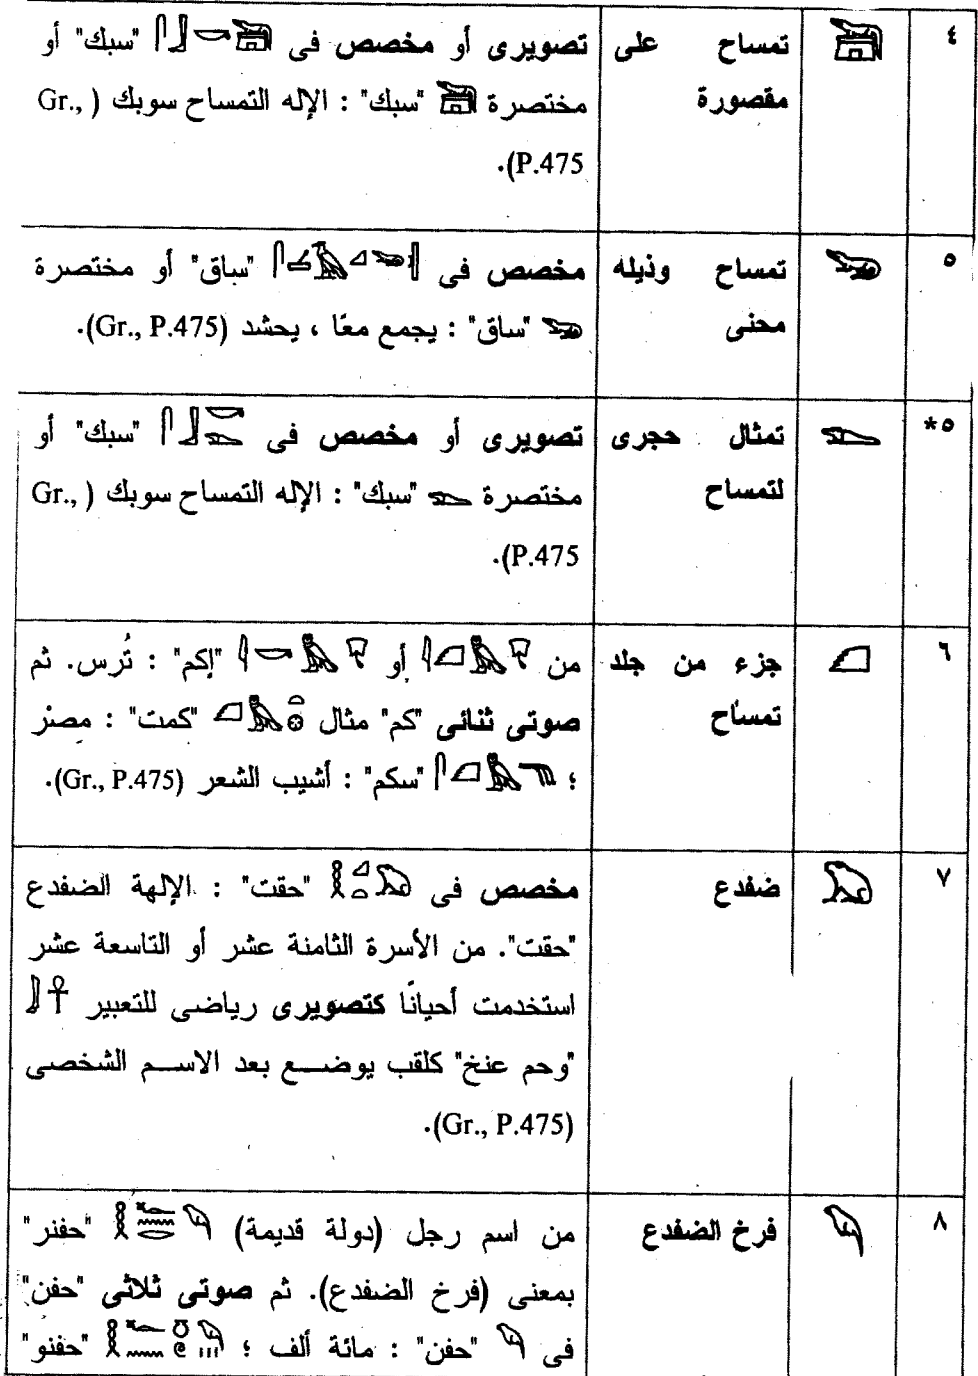 ٤ تمساح على تصويرى أو مخصص فى 𓋴𓃀𓎡𓆋 "سبك" أو
مقصورة مختصرة 𓆋 "سبك" : الإله التمساح سوبك ( Gr.,
P.475).
٥ تمساح وذيله مخصص فى "ساق" أو مختصرة
محنى 𓆌 "ساق" : يجمع معًا ، يحشد (Gr., P.475).
٥* تمثال حجرى تصويرى أو مخصص فى "سبك" أو
لتمساح مختصرة "سبك" : الإله التمساح سوبك ( Gr.,
P.475).
٦ 𓆎 جزء من جلد من أو "إكم" : تُرس. ثم
تمساح صوتى ثنائى "كم" مثال 𓆎𓅓𓏏𓊖 "كمت" : مصر
؛ "سكم" : أشيب الشعر (Gr., P.475).
٧ 𓆏 ضفدع مخصص فى "حقت" : الإلهة الضفدع
"حقت". من الأسرة الثامنة عشر أو التاسعة عشر
استخدمت أحيانًا كتصويرى رياضى للتعبير
"وحم عنخ" كلقب يوضع بعد الاسم الشخصى
(Gr., P.475).
٨ 𓆐 فرخ الضفدع من اسم رجل (دولة قديمة) "حفنر"
بمعنى (فرخ الضفدع). ثم صوتى ثلاثى "حفن"
فى 𓆐 "حفن" : مائة ألف ؛ "حفنو"